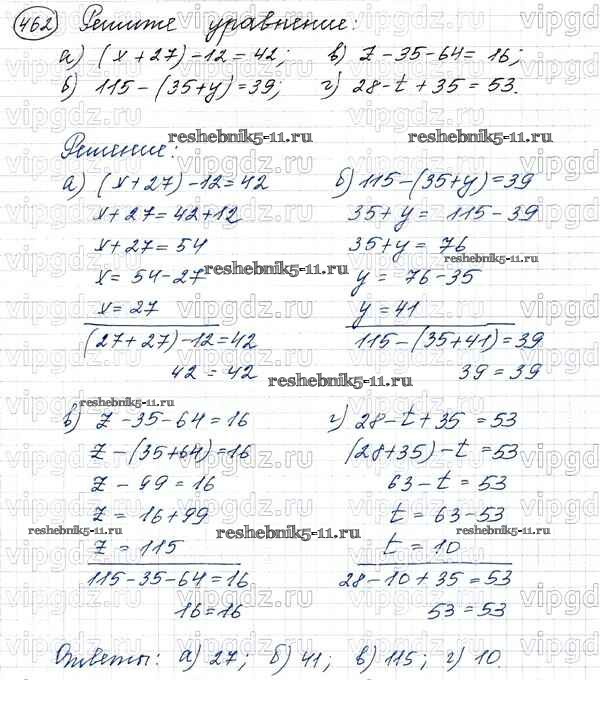 462) Решите уравнение:
а) (x+27)-12=42; в) z-35-64=16;
б) 115-(35+y)=39; г) 28-t+35=53.
reshebnik5-11.ru reshebnik5-11.ru
Решение:
а) (x+27)-12=42 б) 115-(35+y)=39
x+27=42+12 35+y= 115-39
x+27=54 35+y= 76
x= 54-27 y= 76-35
reshebnik5-11.ru reshebnik5-11.ru
x=27 y=41
(27+27)-12=42 115-(35+41)=39
42=42 39=39
reshebnik5-11.ru
reshebnik5-11.ru
в) z-35-64=16 г) 28-t+35=53
z-(35+64)=16 (28+35)-t=53
z-99=16 63-t=53
z=16+99 t=63-53
reshebnik5-11.ru reshebnik5-11.ru reshebnik5-11.ru
z=115 t=10
115-35-64=16 28-10+35=53
16=16 53=53
Ответы: а) 27; б) 41; в) 115; г) 10.
vipgdz.ru